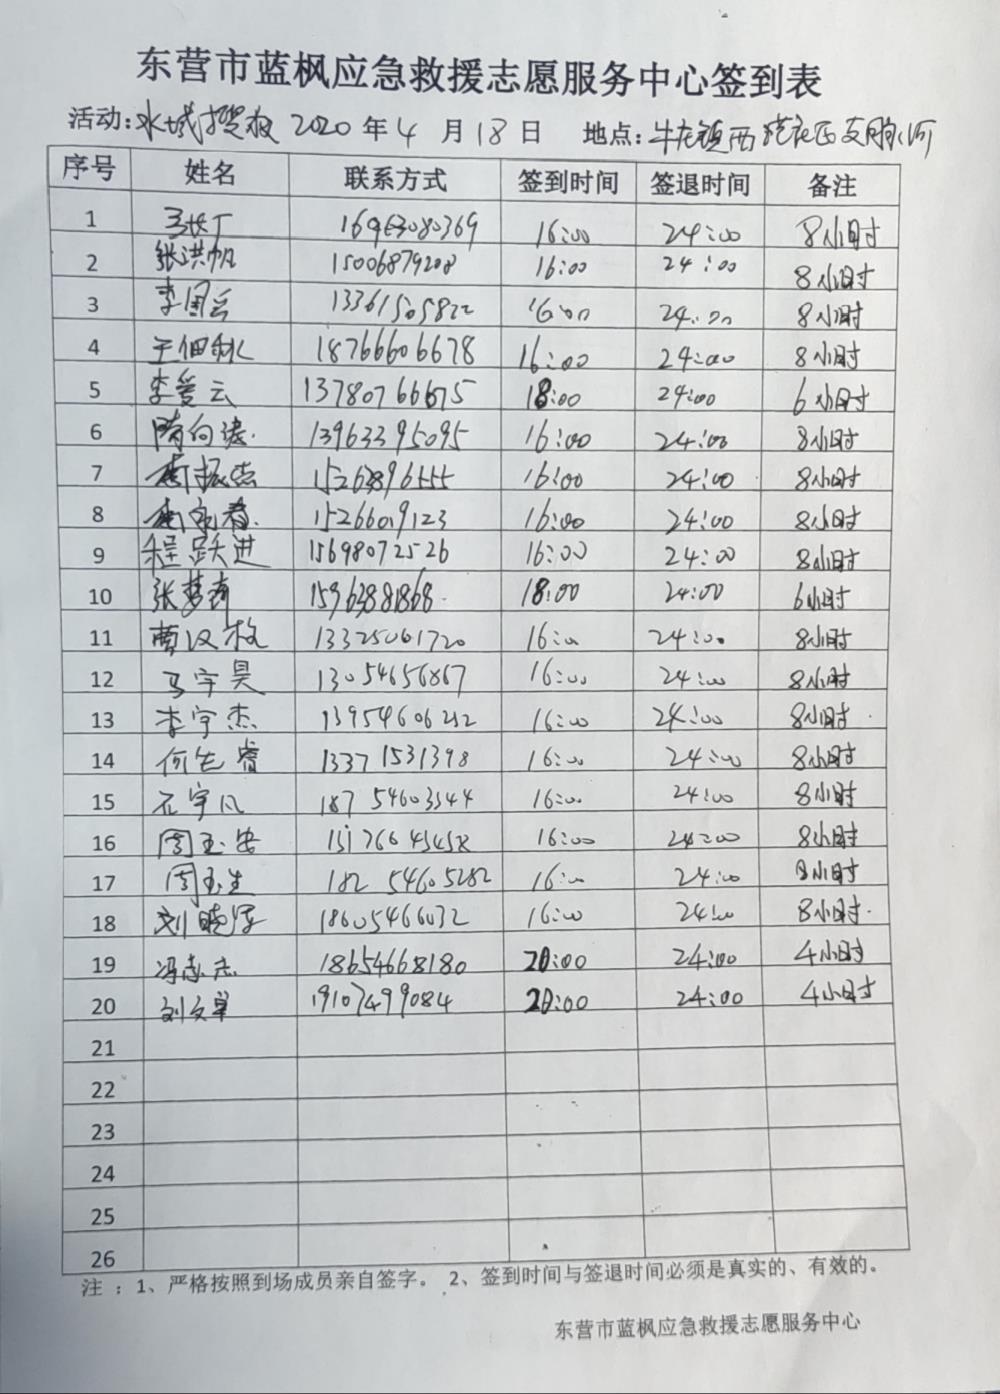 东营市蓝枫应急救援志愿服务中心签到表
活动: 水域搜救 2020 年 4 月 18 日 地点: 牛庄镇西 支脉河
序号 姓名 联系方式 签到时间 签退时间 备注
1 16963080369 16:00 24:00 8小时
2 张洪帆 15006879208 16:00 24:00 8小时
3 李国云 13361505822 16:00 24:00 8小时
4 王佃秋 18766606678 16:00 24:00 8小时
5 李爱云 13780766675 18:00 24:00 6小时
6 隋向涛 13963395095 16:00 24:00 8小时
7 16:00 24:00 8小时
8 15266019123 16:00 24:00 8小时
9 程跃进 15698072526 16:00 24:00 8小时
10 张梦莉 15963881868 18:00 24:00 6小时
11 曹汉枚 13325061720 16:00 24:00 8小时
12 马宇昊 13054656867 16:00 24:00 8小时
13 李宇杰 13954606212 16:00 24:00 8小时
14 13371531398 16:00 24:00 8小时
15 石宇凡 18754603344 16:00 24:00 8小时
16 周玉安 16:00 24:00 8小时
17 周玉生 18254605282 16:00 24:00 8小时
18 刘晓 18605466032 16:00 24:00 8小时
19 冯志杰 18654668180 20:00 24:00 4小时
20 刘文军 19107499084 20:00 24:00 4小时
21
22
23
24
25
26
注 : 1、严格按照到场成员亲自签字。 2、签到时间与签退时间必须是真实的、有效的。
东营市蓝枫应急救援志愿服务中心